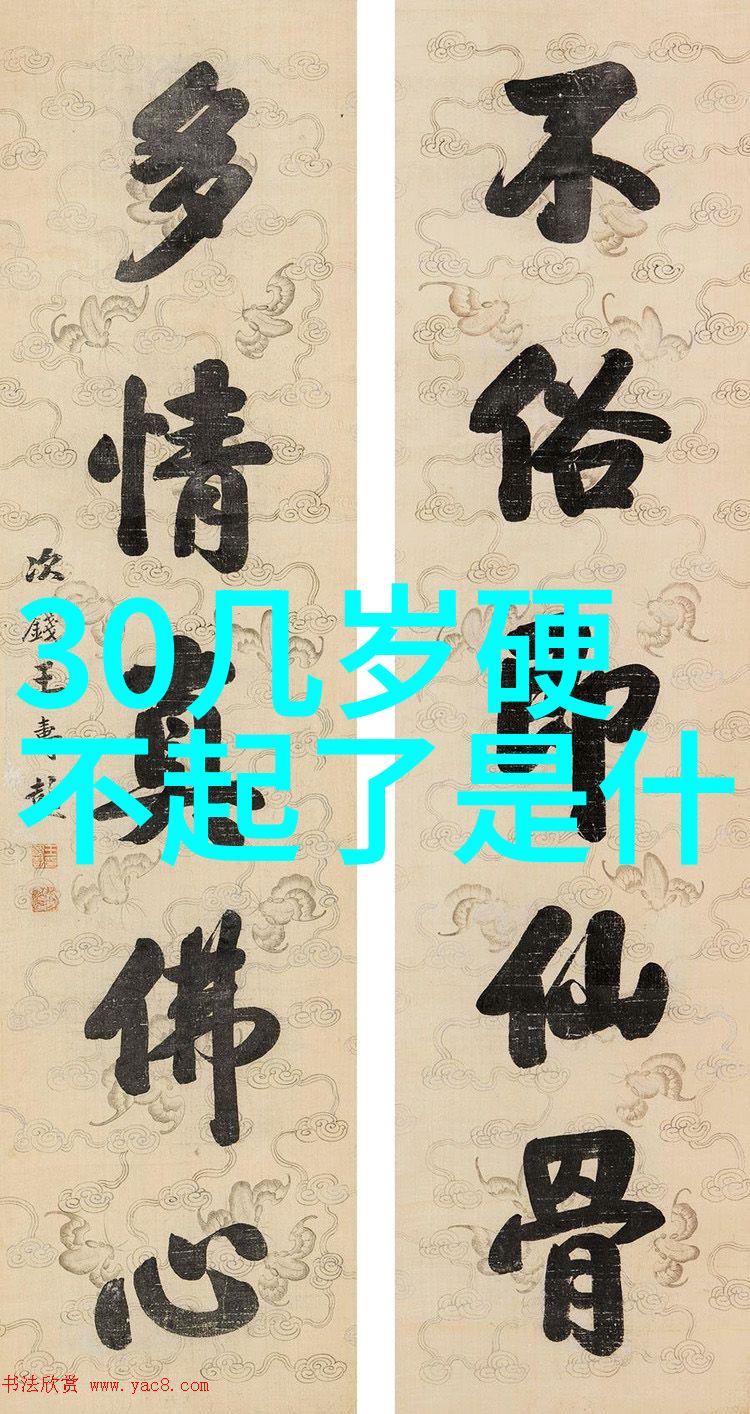 不俗即仙骨
多情真佛心
次錢王壽彭
30几岁硬
不起了是什
书法欣赏 www.yac8.com